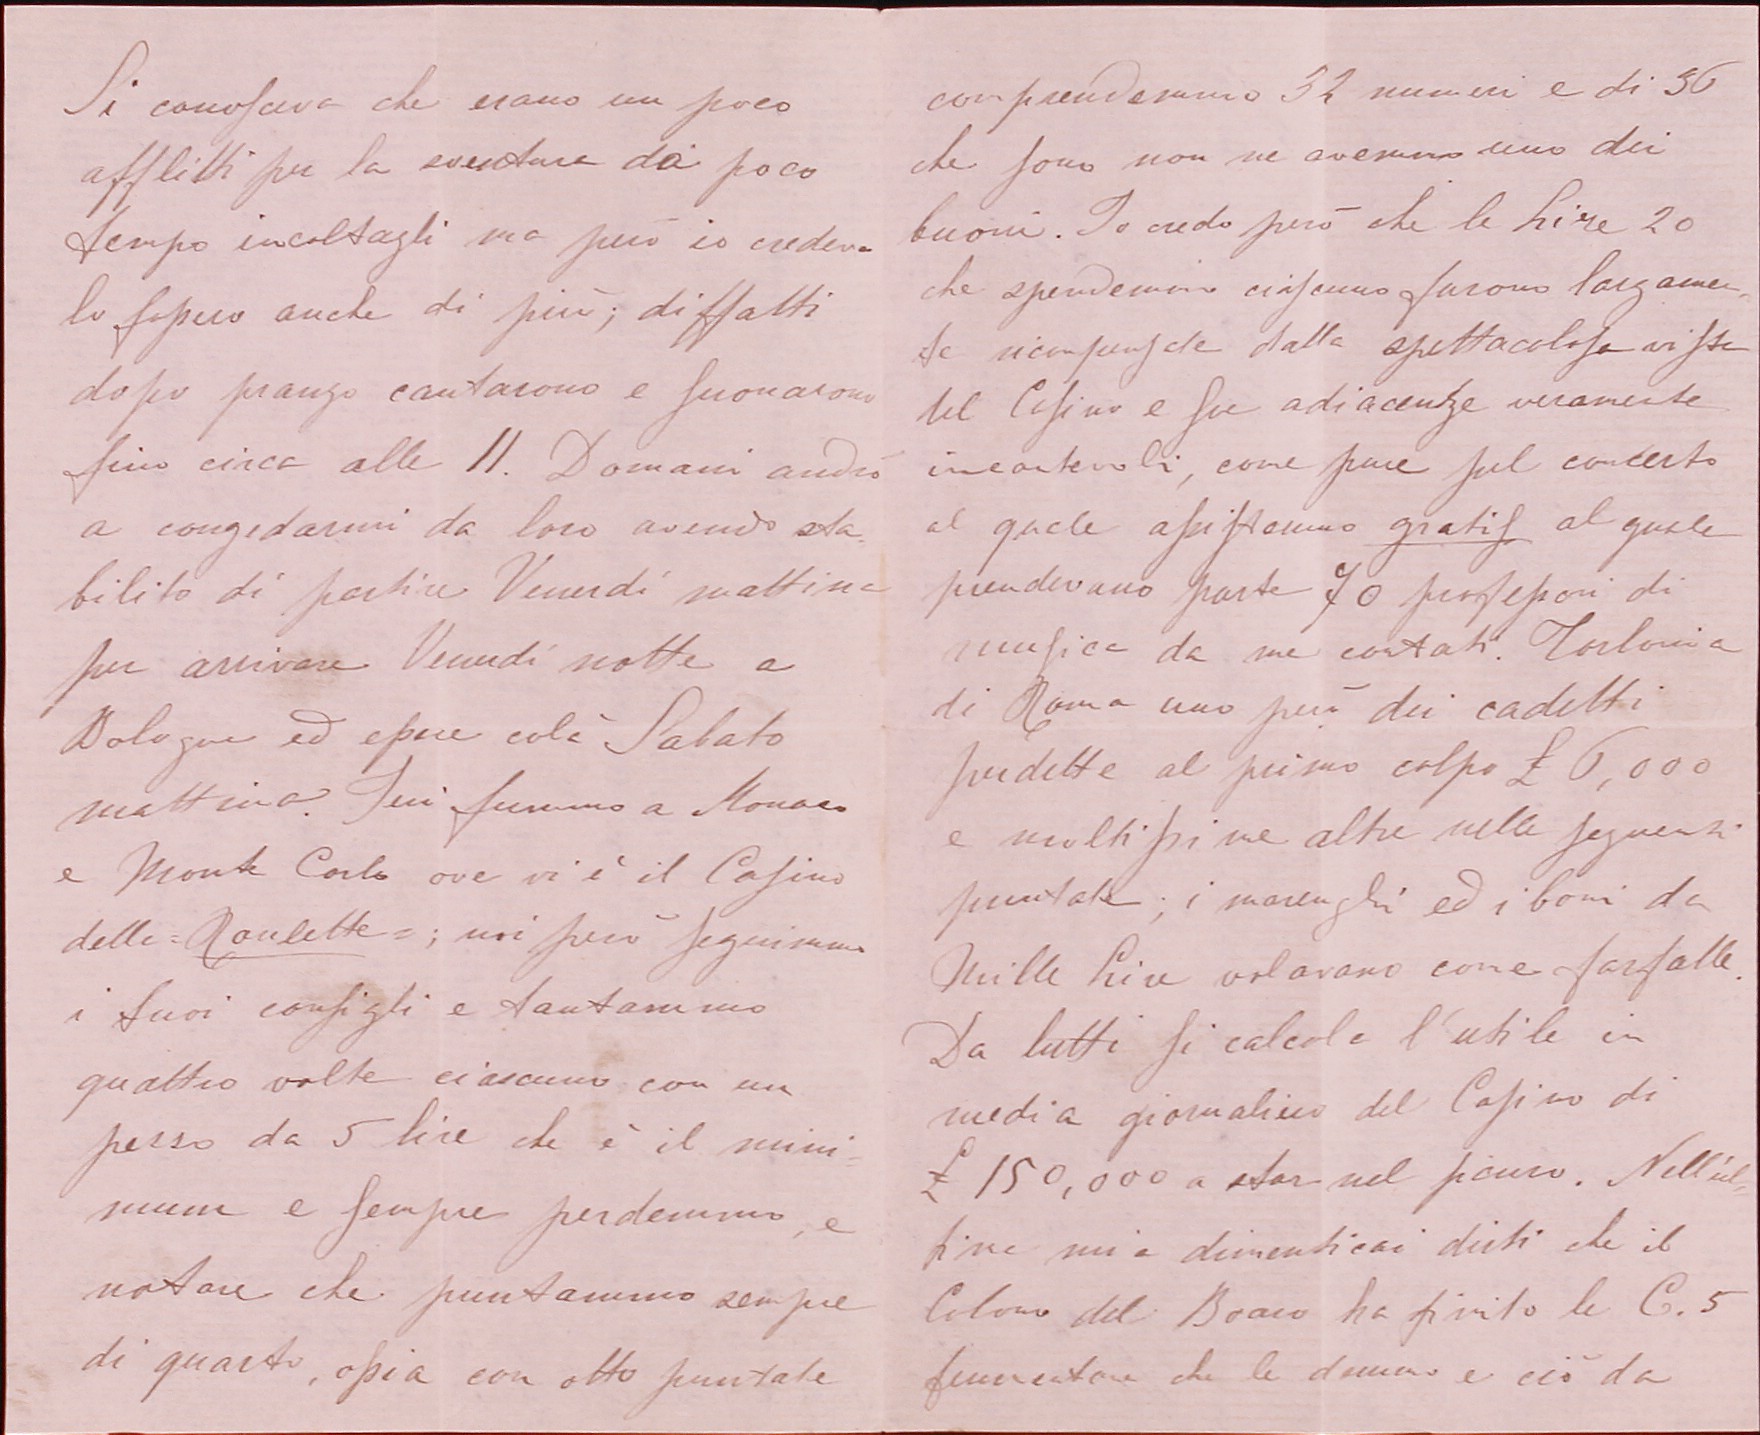 Si conosceva che erano un poco
afflitti per la sventura da poco
tempo incoltagli ma però io credeva
lo fossero anche di più; diffatti
dopo pranzo cantarono e suonarono
fino circa alle 11. Domani andrò
a congedarmi da loro avendo sta-
bilito di partire Venerdì mattina
per arrivare Venerdì notte a
Bologna ed essere colà Sabato
mattina. Ieri fummo a Monaco
e Monte Carlo ove vi è il Casino
delle =Roulette=; noi però seguimmo
i suoi consigli e tantammo
quattro volte ciascuno con un
pezzo da 5 lire che è il mini-
mum e sempre perdemmo, e
notare che puntammo sempre
di quarto, ossia con otto puntate
comprendemmo 32 numeri e di 36
che sono non ne avemmo uno dei
buoni. Io credo però che le Lire 20
che spendemmo ciascuno furono largamen-
te ricompensate dalla spettacolosa vista
del Casino e sue adiacenze veramente
incantevoli, come pure pel concerto
al quale assistemmo gratis al quale
prendevano parte 70 professori di
musica da me contati. Torlonia
di Roma uno però dei cadetti
perdette al primo colpo £ 6,000
e moltissime altre nelle seguenti
puntate; i marenghi ed i boni da
Mille Lire volavano come farfalle.
Da tutti si calcola l'utile in
media giornaliero del Casino di
£ 150,000 a star nel sicuro. Nell'ul-
tima mia dimenticai dirti che il
Colono del Boaro ha finito le C. 5
frumentone che le demmo e ciò da